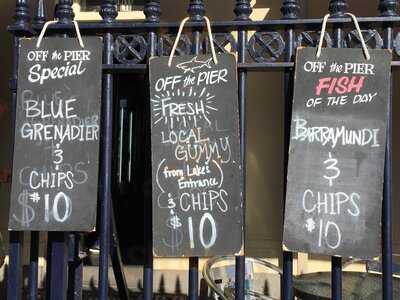 OFF THE PIER
Special
BLUE
GRENADIER
&
CHIPS
$10
OFF THE PIER
FRESH
LOCAL
GUMMY
(from Lakes
Entrance)
& CHIPS
$10
OFF THE PIER
FISH
OF THE DAY
BARRAMUNDI
&
CHIPS
$10